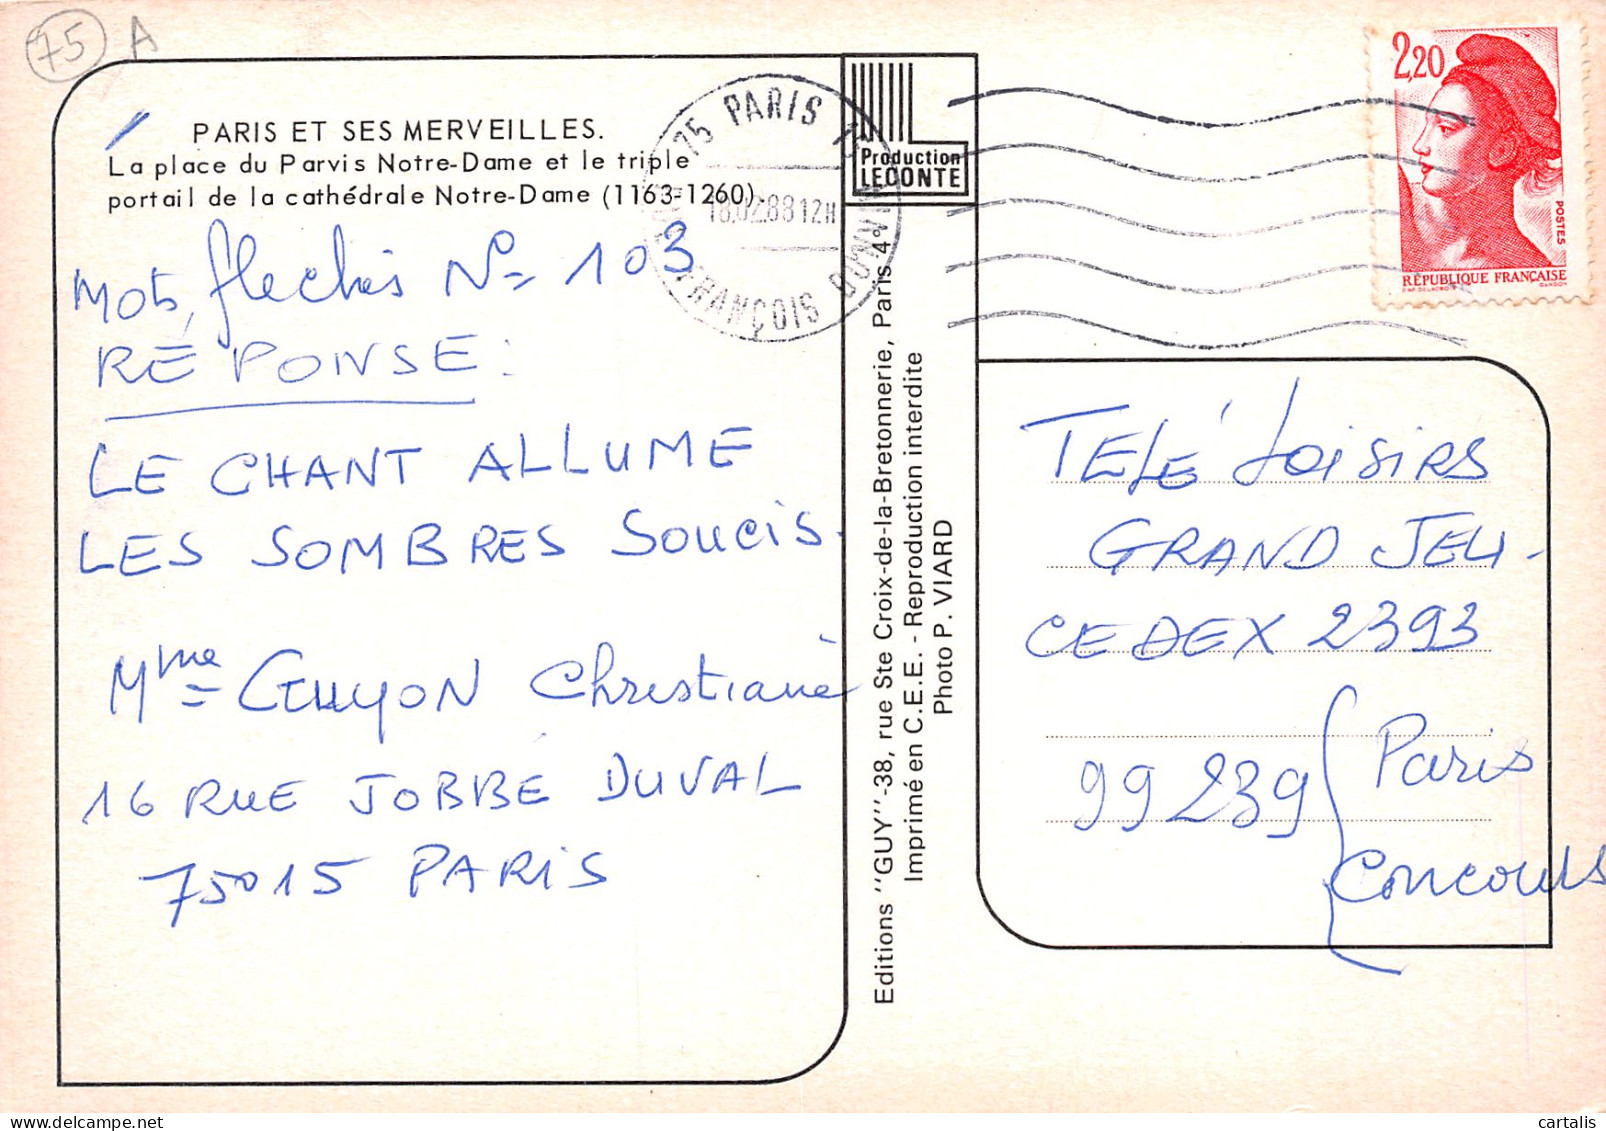 75 A
PARIS ET SES MERVEILLES.
La place du Parvis Notre-Dame et le triple
portail de la cathédrale Notre-Dame (1163-1260).
Mots fléchés N° 103
RÉPONSE :
LE CHANT ALLUME
LES SOMBRES SOUCIS.
Mme GUYON Christiane
16 RUE JOBBÉ DUVAL
75015 PARIS
75 PARIS
18.02.88 12H
FRANÇOIS BONVIN
Production
LECONTE
Editions "GUY"-38, rue Ste Croix-de-la-Bretonnerie, Paris 4e
Imprimé en C.E.E. - Reproduction interdite
Photo P. VIARD
2,20
POSTES
RÉPUBLIQUE FRANÇAISE
TÉLÉ LOISIRS
GRAND JEU -
CEDEX 2393
99239 Paris
Concours
cartalis